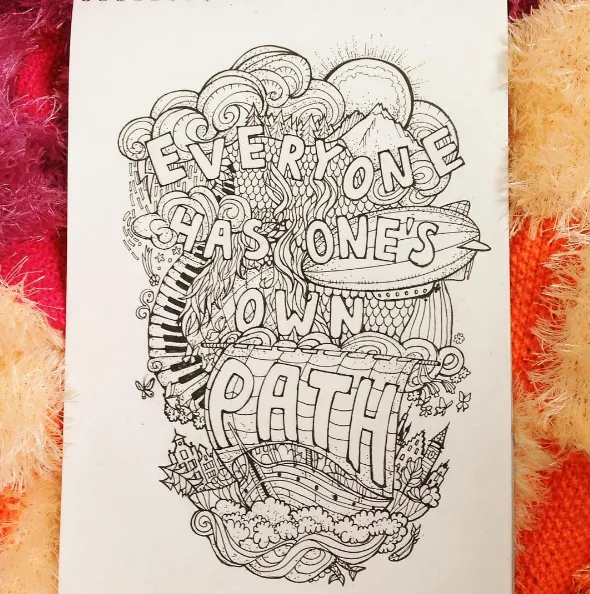 EVERYONE
HAS ONE'S
OWN
PATH